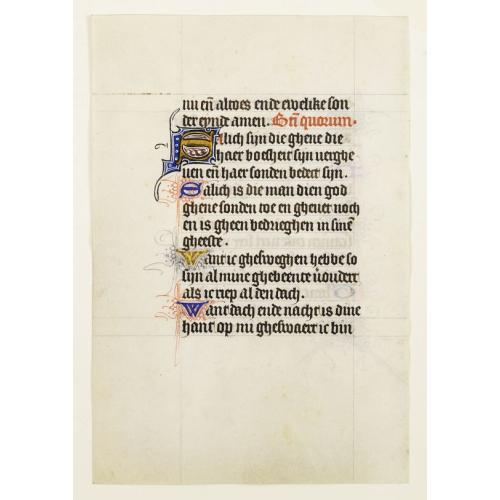 nu eñ altoes ende ewelike son
der eynde amen. Bti quorum.
Salich sijn die ghene die
haer bosheit sijn verghe
uen eñ haer sonden bedect sijn.
Salich is die man dien god
ghene sonden toe en gheuet noch
en is gheen bedrieghen in sinē
gheeste.
Want ic ghesweghen hebbe so
sijn al mine ghebeente v̄oudert
als ic riep al den dach.
Want dach ende nacht is dine
hant op mi gheswaert ic bin